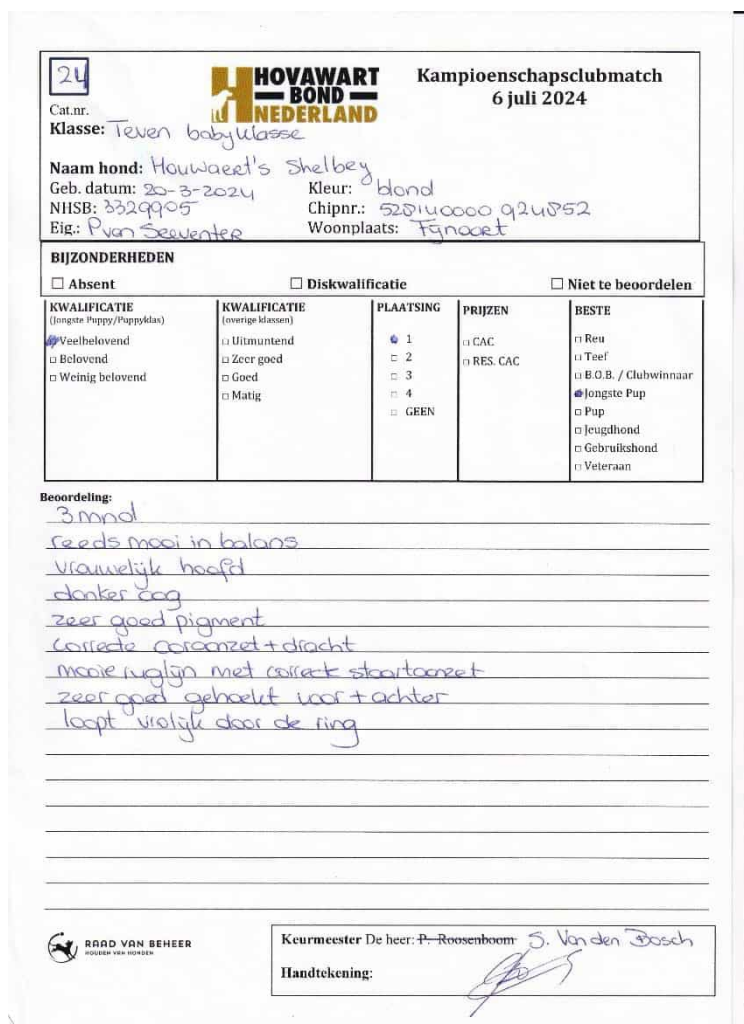 24
Cat.nr.
HOVAWART
BOND
NEDERLAND
Kampioenschapsclubmatch
6 juli 2024
Klasse: Teven babyklasse
Naam hond: Houwaert's Shelbey
Geb. datum: 20-3-2024 Kleur: blond
NHSB: 3329905 Chipnr.: 528140000 924852
Eig.: P van Seeventer Woonplaats: Fijnaart
BIJZONDERHEDEN
Absent Diskwalificatie Niet te beoordelen
KWALIFICATIE
(Jongste Puppy/Puppyklas)
Veelbelovend
Belovend
Weinig belovend
KWALIFICATIE
(overige klassen)
Uitmuntend
Zeer goed
Goed
Matig
PLAATSING
1
2
3
4
GEEN
PRIJZEN
CAC
RES. CAC
BESTE
Reu
Teef
B.O.B. / Clubwinnaar
Jongste Pup
Pup
Jeugdhond
Gebruikshond
Veteraan
Beoordeling:
3 mnd
reeds mooi in balans
vrouwelijk hoofd
donker oog
zeer goed pigment
correcte ooraanzet + dracht
mooie ruglijn met correct staartaanzet
zeer goed gehoekt voor + achter
loopt vrolijk door de ring
RAAD VAN BEHEER
HOUDEN VAN HONDEN
Keurmeester De heer: P. Roosenboom S. Van den Bosch
Handtekening: